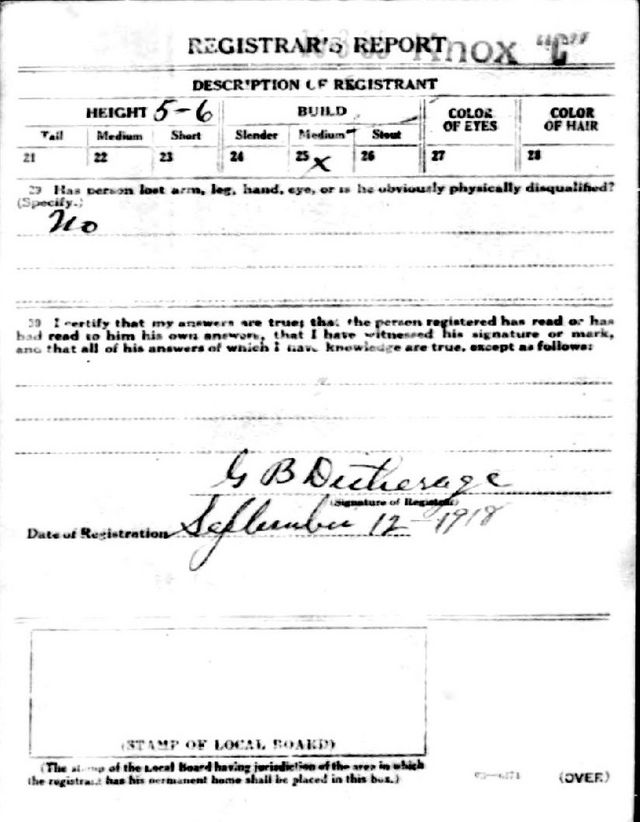 REGISTRAR'S REPORT Knox "C"
DESCRIPTION OF REGISTRANT
HEIGHT 5-6 BUILD COLOR OF EYES COLOR OF HAIR
Tall Medium Short Slender Medium Stout
21 22 23 24 25 X 26 27 28
29 Has person lost arm, leg, hand, eye, or is he obviously physically disqualified?
(Specify.)
No
30 I certify that my answers are true; that the person registered has read or has
had read to him his own answers, that I have witnessed his signature or mark,
and that all of his answers of which I have knowledge are true, except as follows:
G B
(Signature of Registrar)
Date of Registration September 12-1918
(STAMP OF LOCAL BOARD)
(The stamp of the Local Board having jurisdiction of the area in which
the registrant has his permanent home shall be placed in this box.)
(OVER)